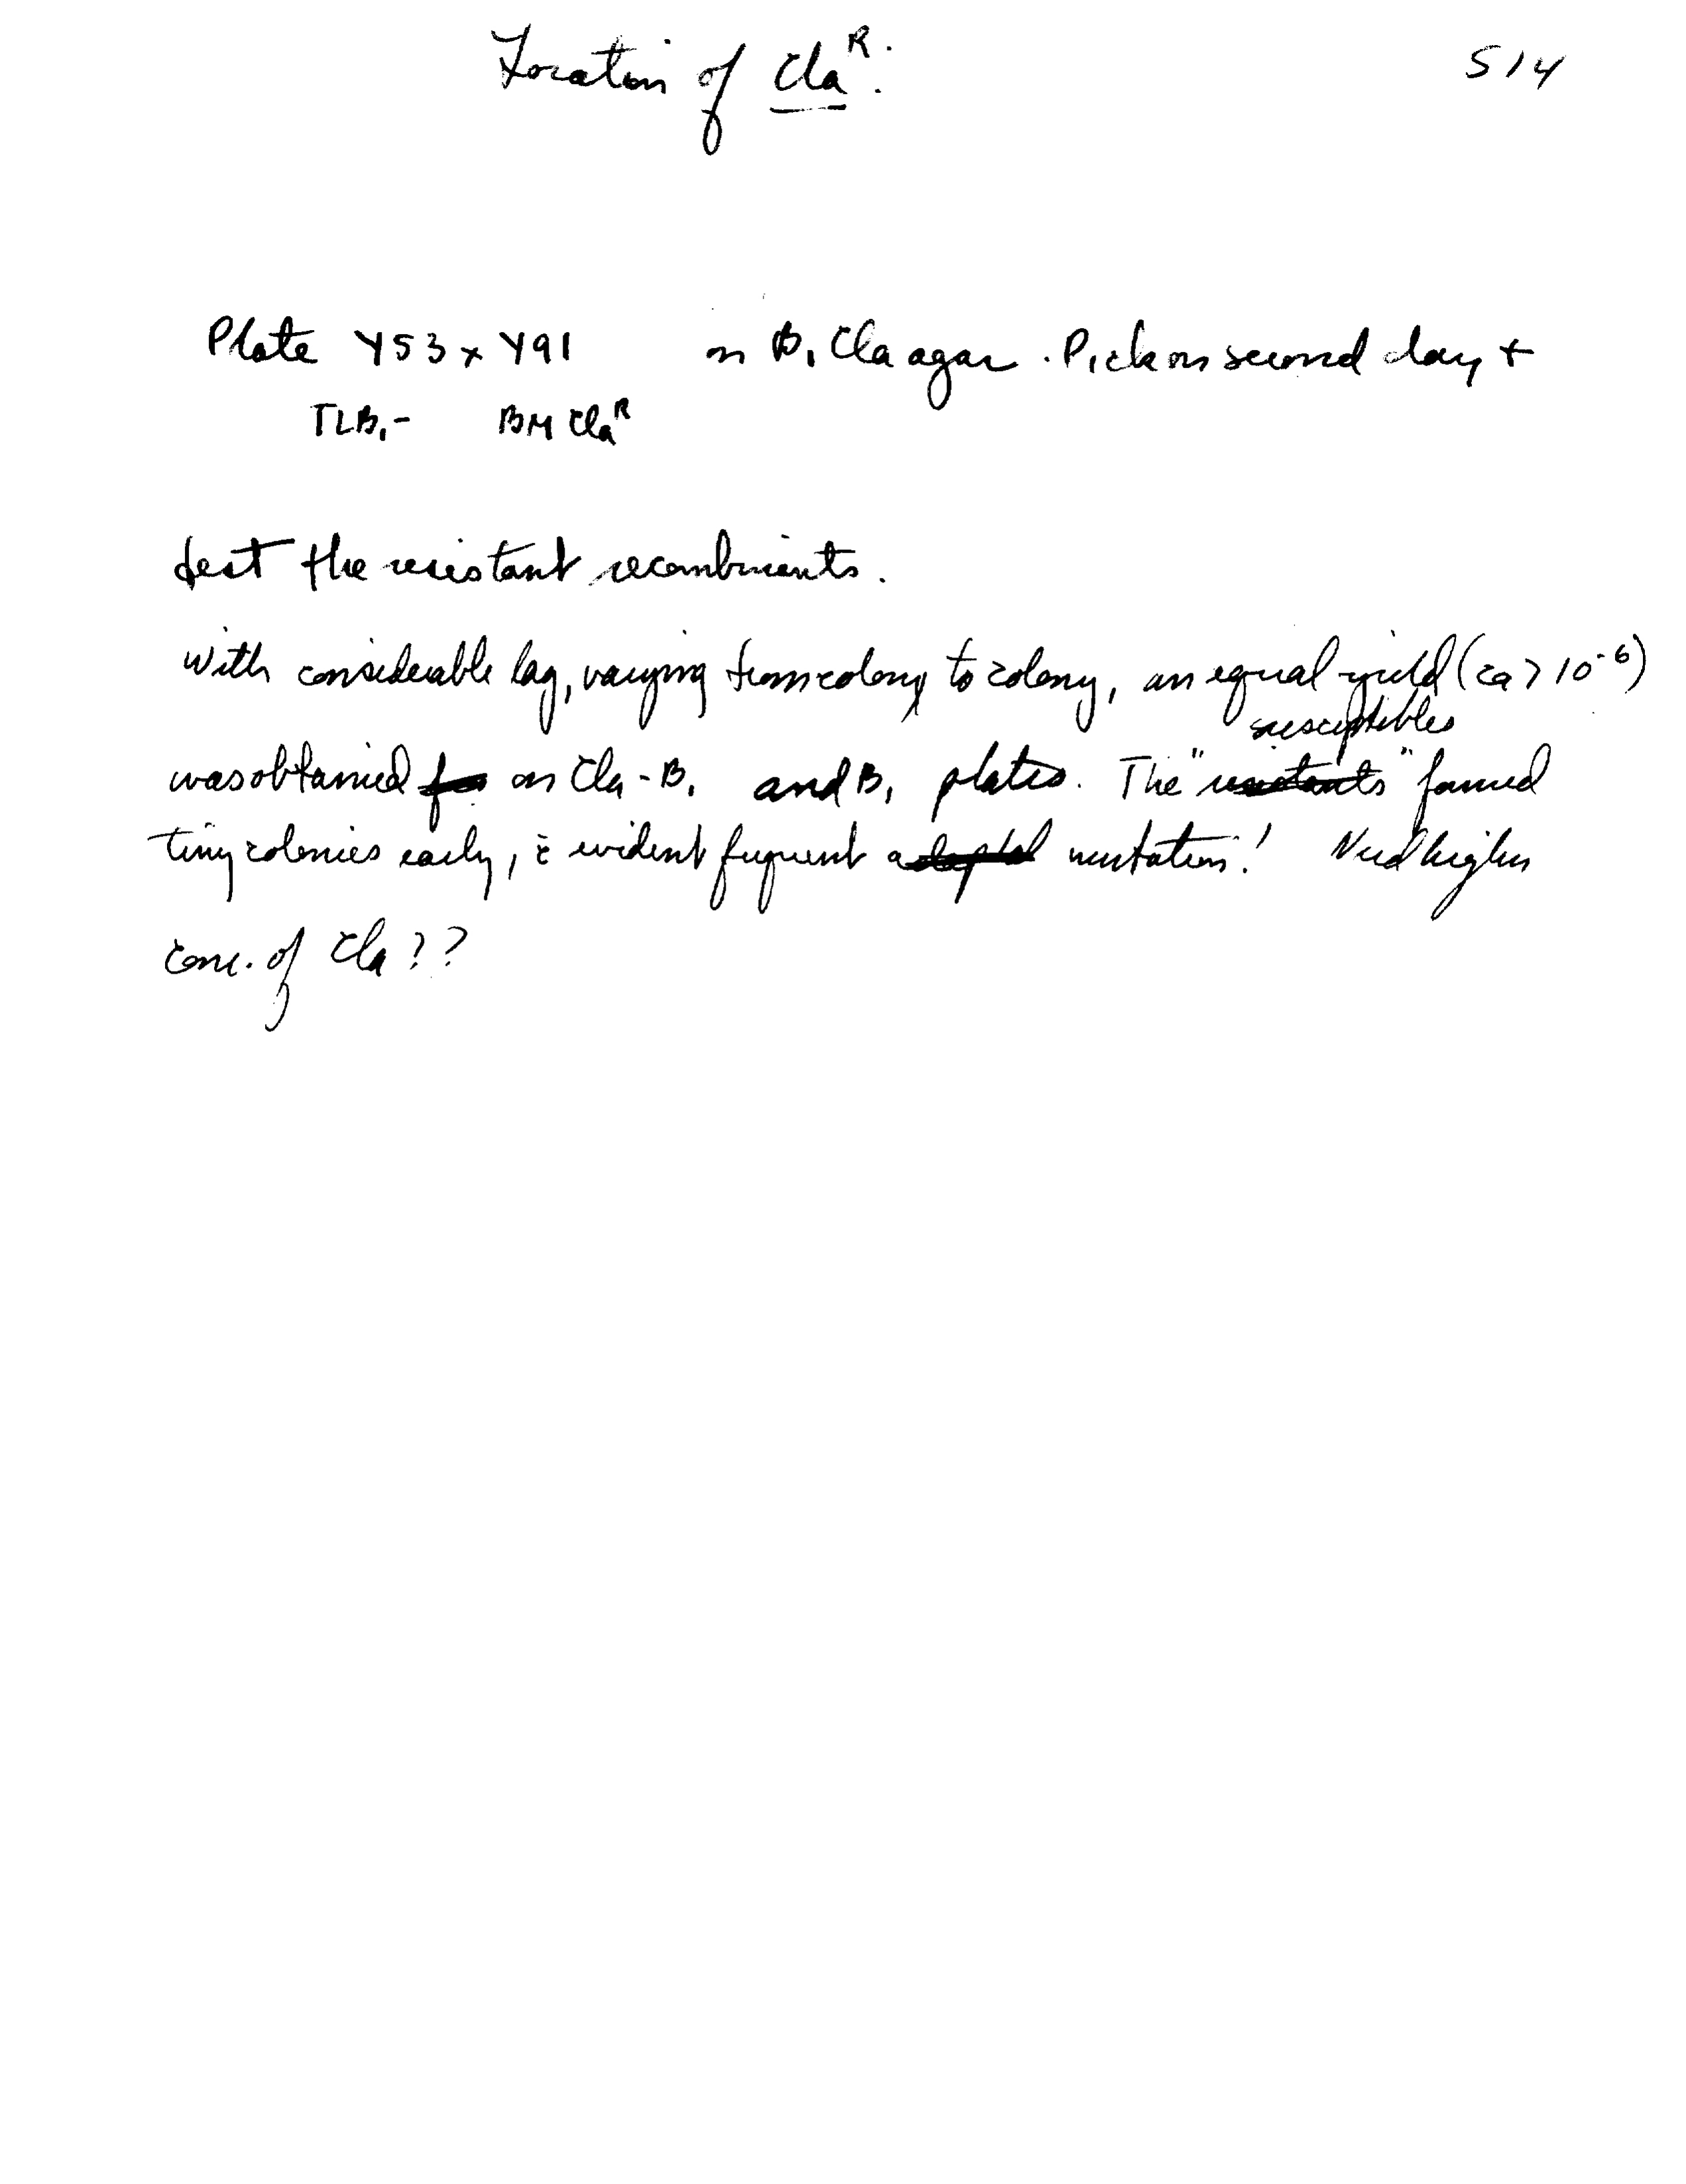 Location of Cla^R.
514
Plate Y53 x Y91 on B1 Cla agar. Pick on second day +
TLB1- BM Cla^R
test the resistant recombinants.
With considerable lag, varying from colony to colony, an equal yield (ca > 10^-6)
susceptibles
was obtained on Cla-B1 and B1 plates. The "resistants" formed
tiny colonies early, c̄ evident frequent mutation! Need higher
conc. of Cla??